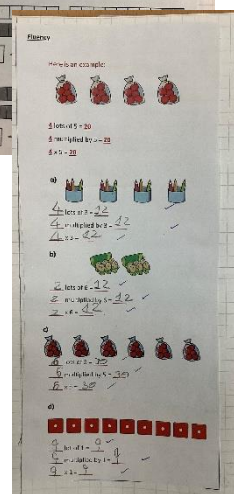 Fluency
Here is an example:
4 lots of 5 = 20
4 multiplied by 5 = 20
4 x 5 = 20
a)
4 lots of 3 = 12
4 multiplied by 3 = 12
4 x 3 = 12
b)
2 lots of 6 = 12
2 multiplied by 6 = 12
2 x 6 = 12
c)
6 lots of 5 = 30
6 multiplied by 5 = 30
6 x 5 = 30
d)
9 lots of 1 = 9
9 multiplied by 1 = 9
9 x 1 = 9